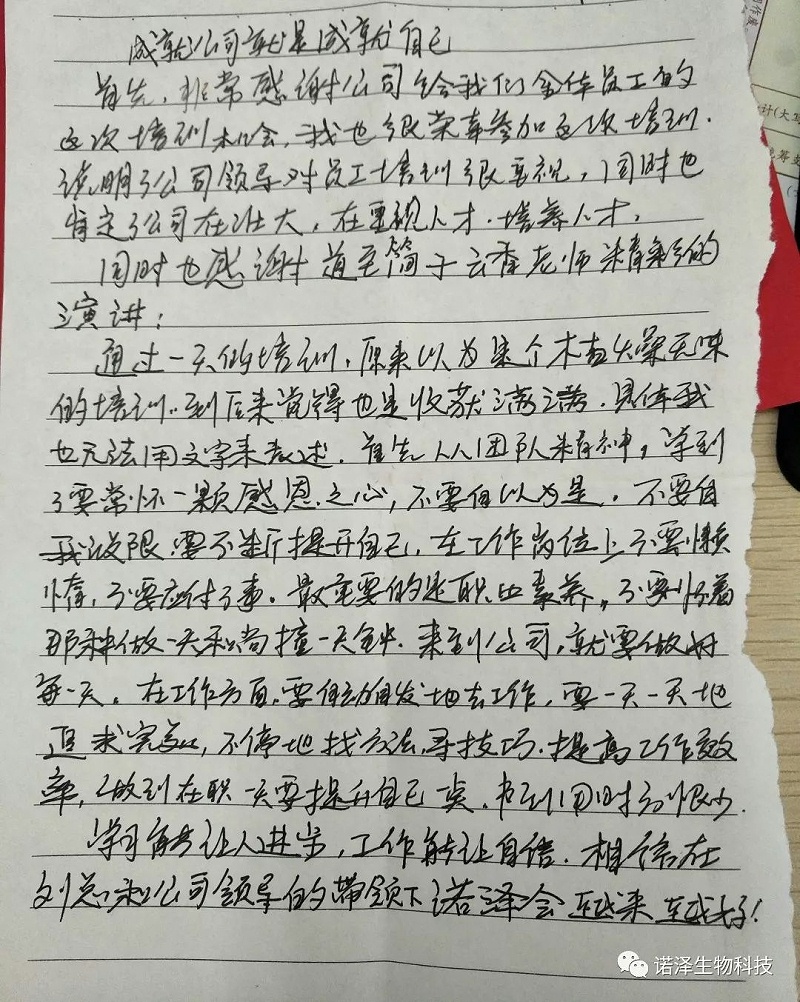 成就公司就是成就自己
首先,非常感谢公司给我们全体员工的
这次培训机会,我也很荣幸参加这次培训.
说明了公司领导对员工培训很重视,同时也
肯定了公司在壮大,在重视人才.培养人才,
同时也感谢道至简于云香老师精彩的
演讲;
通过一天的培训,原来以为是个木枯燥无味
的培训..到后来觉得也是收获满满.具体我
也无法用文字来表述.首先从团队精神,学到
了要常怀一颗感恩之心,不要自以为是.不要自
我设限.要不断提升自己,在工作岗位上不要懒
惰,不要应付了事。最重要的是职业素养,不要怀着
那种做一天和尚撞一天钟.来到公司,就要做好
每一天。在工作方面,要自动自发地去工作,要一天一天地
追求完美,不停地找方法,寻技巧.提高工作效
率,做到在职一天要提升自己一点,书到用时方恨少.
学习能让人进步,工作能让自信.相信在
刘总和公司领导的带领下诺泽会越来越好!
诺泽生物科技
计(大写
筹